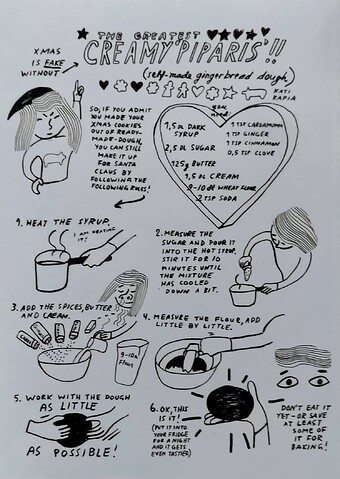 THE GREATEST
CREAMY 'PIPARIS'!!
(self-made gingerbread dough)
KATI
RAPIA
XMAS
IS FAKE
WITHOUT
SO, IF YOU ADMIT
YOU MADE YOUR
XMAS COOKIES
OUT OF READY-
MADE-DOUGH,
YOU CAN STILL
MAKE IT UP
FOR SANTA
CLAUS BY
FOLLOWING THE
FOLLOWING RULES!
you need
1,5 DL DARK
SYRUP
2,5 DL SUGAR
125g BUTTER
1,5 DL CREAM
9-10 dl WHEAT FLOUR
2 TSP SODA
1 TSP CARDAMOM
1 TSP GINGER
1 TSP CINNAMON
0,5 TSP CLOVE
1. HEAT THE SYRUP.
I AM HEATING
IT!
2. MEASURE THE
SUGAR AND POUR IT
INTO THE HOT SYRUP.
STIR IT FOR 10
MINUTES UNTIL
THE MIXTURE
HAS COOLED
DOWN A BIT.
3. ADD THE SPICES, BUTTER
AND CREAM.
4. MEASURE THE FLOUR, ADD
LITTLE BY LITTLE.
9-10dl
FLOUR
5. WORK WITH THE DOUGH
AS LITTLE
AS POSSIBLE!
6. OK, THIS
IS IT!
(PUT IT INTO
YOUR FRIDGE
FOR A NIGHT
AND IT GETS
EVEN TASTIER)
DON'T EAT IT
YET - OR SAVE
AT LEAST
SOME OF
IT FOR
BAKING!